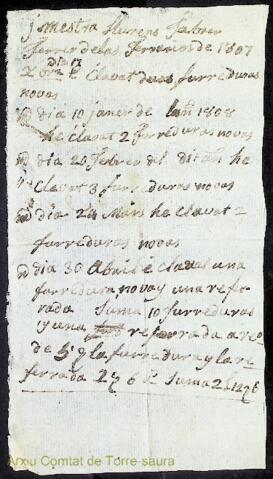 j mestra Llurens Fabrer
ferrer de las ferraries de 1807
dia 17
Clavat duas furreduras
novas
dia 10 janer de lañ 1808
he clavat 2 furreduras novas
dia 20 febrer del dit añ he
Clavat 3 furreduras novas
dia 24 Mars he clavat 2
furreduras novas
dia 30 Abril e clavat una
furredura nova y una refe
rada Suma 10 furreduras
y una referrada a
de la furredura y la re
ferrada 2 6 Suma 2
Arxiu Comtat de Torre-saura